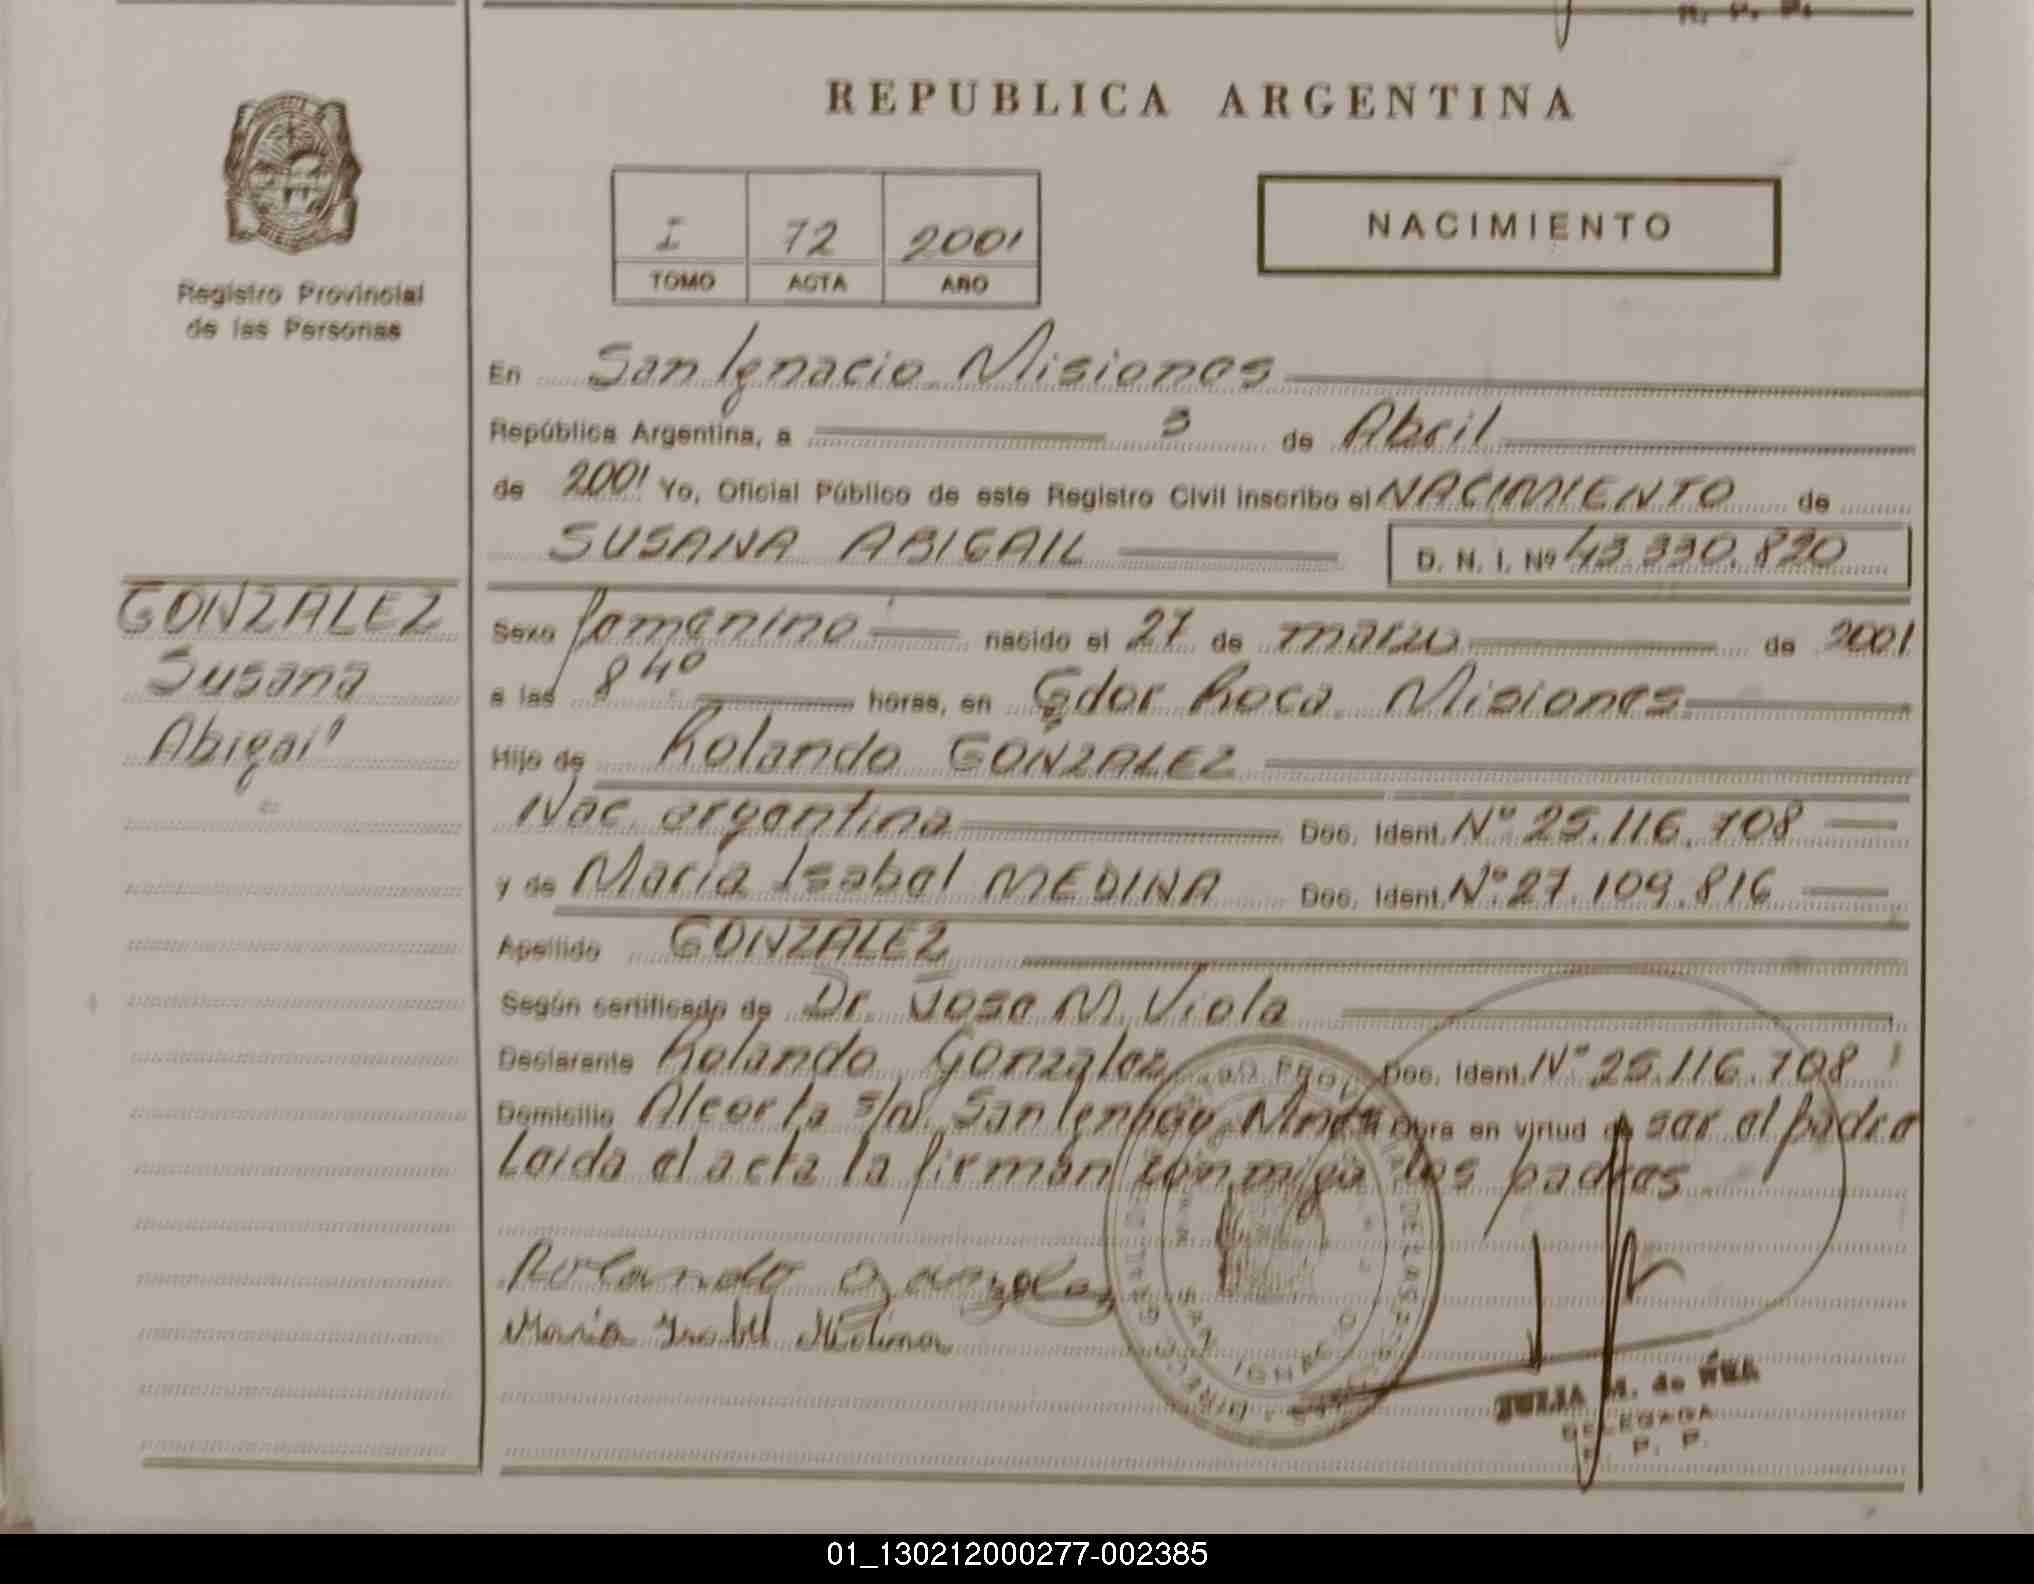 R. P. P.
REPUBLICA ARGENTINA
NACIMIENTO
I 72 2001
TOMO ACTA AÑO
Registro Provincial
de las Personas
En San Ignacio Misiones
República Argentina, a 3 de Abril
de 2001 Yo, Oficial Público de este Registro Civil inscribo el NACIMIENTO de
SUSANA ABIGAIL D. N. I. Nº 43.330.820
GONZALEZ
Susana
Abigail
Sexo femenino nacido el 27 de marzo de 2001
a las 8 40 horas, en Gdor Roca Misiones
Hijo de Rolando GONZALEZ
Nac. argentina Doc. Ident. Nº 25.116.708
y de María Isabel MEDINA Doc. Ident. Nº 27.109.816
Apellido GONZALEZ
Según certificado de Dr. Jose M. Viola
Declarante Rolando Gonzalez Doc. Ident. Nº 25.116.708
Domicilio Alcorta s/nº San Ignacio Mnes Obra en virtud de ser el padre
Leida el acta la firman conmigo los padres
Rolando Gonzalez
María Isabel Medina
SAN IGNACIO
JULIA M. de
DELEGADA
R. P. P.
01_130212000277-002385